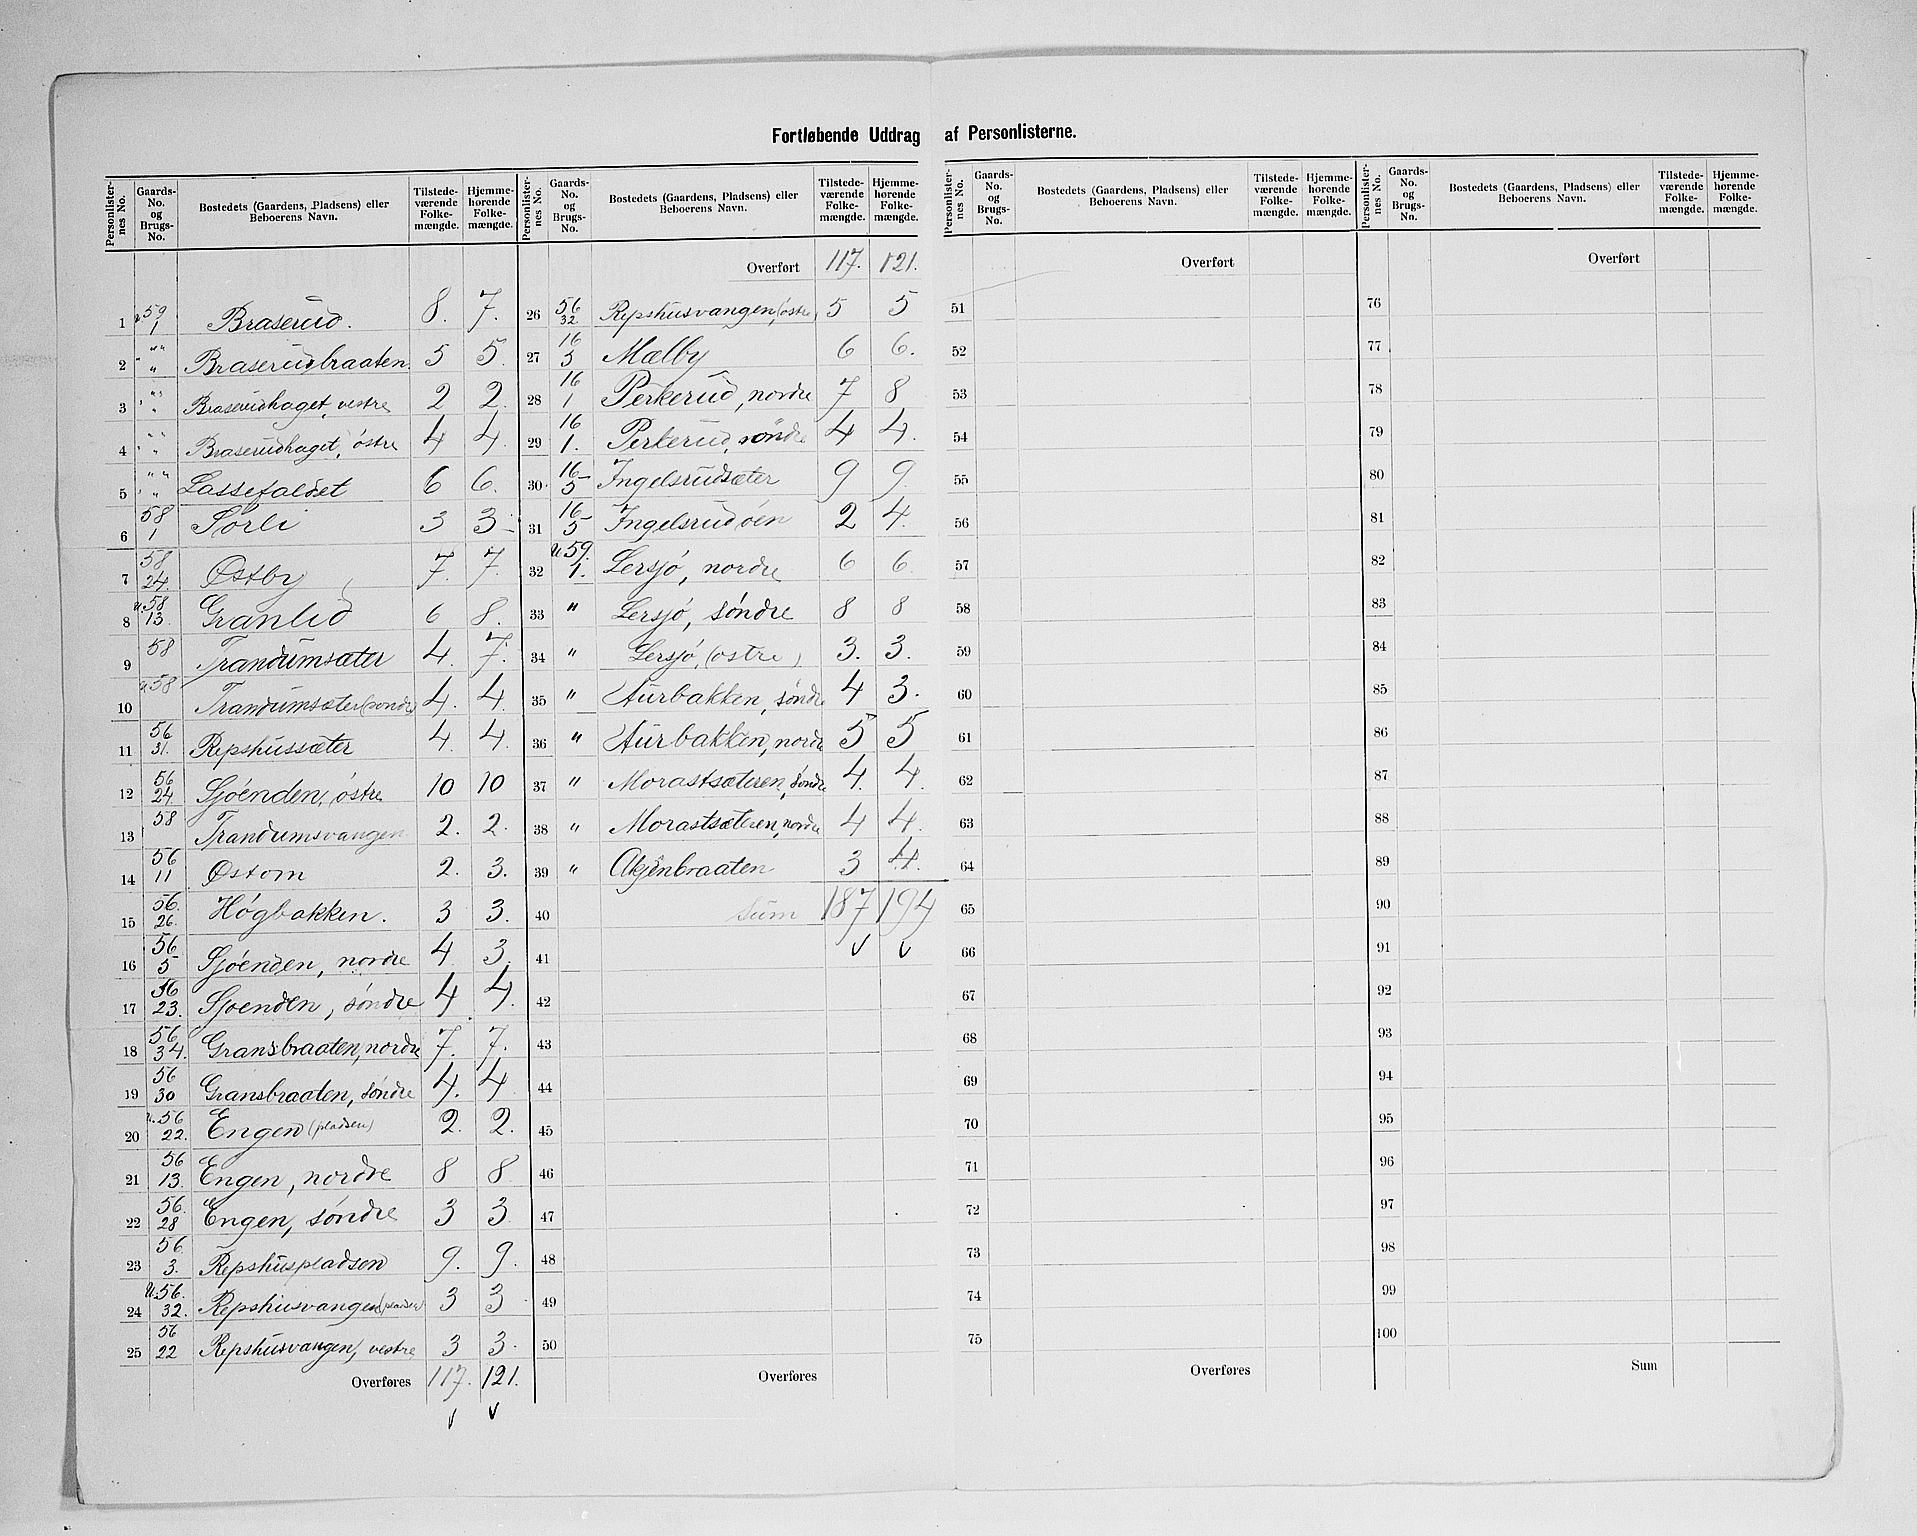 Fortløbende Uddrag af Personlisterne.
Personlisternes No. Gaards-No. og Brugs-No. Bostedets (Gaardens, Pladsens) eller Beboerens Navn. Tilstedeværende Folkemængde. Hjemmehørende Folkemængde.
1 u 59/1 Braserud. 8. 7.
2 " " Braserudbraaten 5 5.
3 " " Braserudhaget, vestre 2 2.
4 " " Braserudhaget, østre 4 4.
5 " " Lassefaldet 6 6.
6 58/1 Sørli 3 3
7 58/24 Østby 7. 7.
8 u. 58/13. Granlid 6 8.
9 58 Trandumsæter 4. 7.
10 u. 58 Trandumsæter (søndre) 4. 4.
11 56/31. Repshussæter 4. 4.
12 56/24. Sjøenden, østre 10 10
13 58 Trandumsvangen 2. 2.
14 56/11 Østom 2. 3.
15 56./26. Høgbakken. 3 3.
16 56./5 Sjøenden, nordre 4 3.
17 56/23. Sjoenden, søndre 4 4.
18 56/34. Gransbraaten, nordre 7. 7.
19 56/30 Gransbraaten, søndre 4. 4
20 u. 56/22. Engen (pladsen) 2. 2.
21 56/13. Engen, nordre 8 8
22 56./28 Engen, søndre 3 3
23 56./3. Repshuspladsen 9. 9.
24 u. 56./32. Repshusvangen (pladsen) 3 3
25 56/22 Repshusvangen, vestre 3 3.
Overføres 117. 121.
Personlisternes No. Gaards-No. og Brugs-No. Bostedets (Gaardens, Pladsens) eller Beboerens Navn. Tilstedeværende Folkemængde. Hjemmehørende Folkemængde.
Overført 117. 121.
26 56/32. Repshusvangen, (østre) 5 5
27 16/3 Mælby 6 6.
28 16/1 Perkerud, nordre 7 8
29 16/1. Perkerud, søndre 4 4.
30 16/5 Ingelsrudsæter 9 9.
31 16/5 Ingelsrudøen 2 4.
32 u 59./1. Lersjø, nordre 6 6.
33 " Lersjø, søndre 8 8
34 " Lersjø, (østre) 3. 3.
35 " Aurbakken, søndre 4 3.
36 " Aurbakken, nordre 5 5
37 " Morastsæteren, søndre 4. 4.
38 " Morastsæteren, nordre 4 4.
39 " 3 4.
40 sum 187 194
41
42
43
44
45
46
47
48
49
50
Overføres
Personlisternes No. Gaards-No. og Brugs-No. Bostedets (Gaardens, Pladsens) eller Beboerens Navn. Tilstedeværende Folkemængde. Hjemmehørende Folkemængde.
Overført
51
52
53
54
55
56
57
58
59
60
61
62
63
64
65
66
67
68
69
70
71
72
73
74
75
Overføres
Personlisternes No. Gaards-No. og Brugs-No. Bostedets (Gaardens, Pladsens) eller Beboerens Navn. Tilstedeværende Folkemængde. Hjemmehørende Folkemængde.
Overført
76
77
78
79
80
81
82
83
84
85
86
87
88
89
90
91
92
93
94
95
96
97
98
99
100
Sum